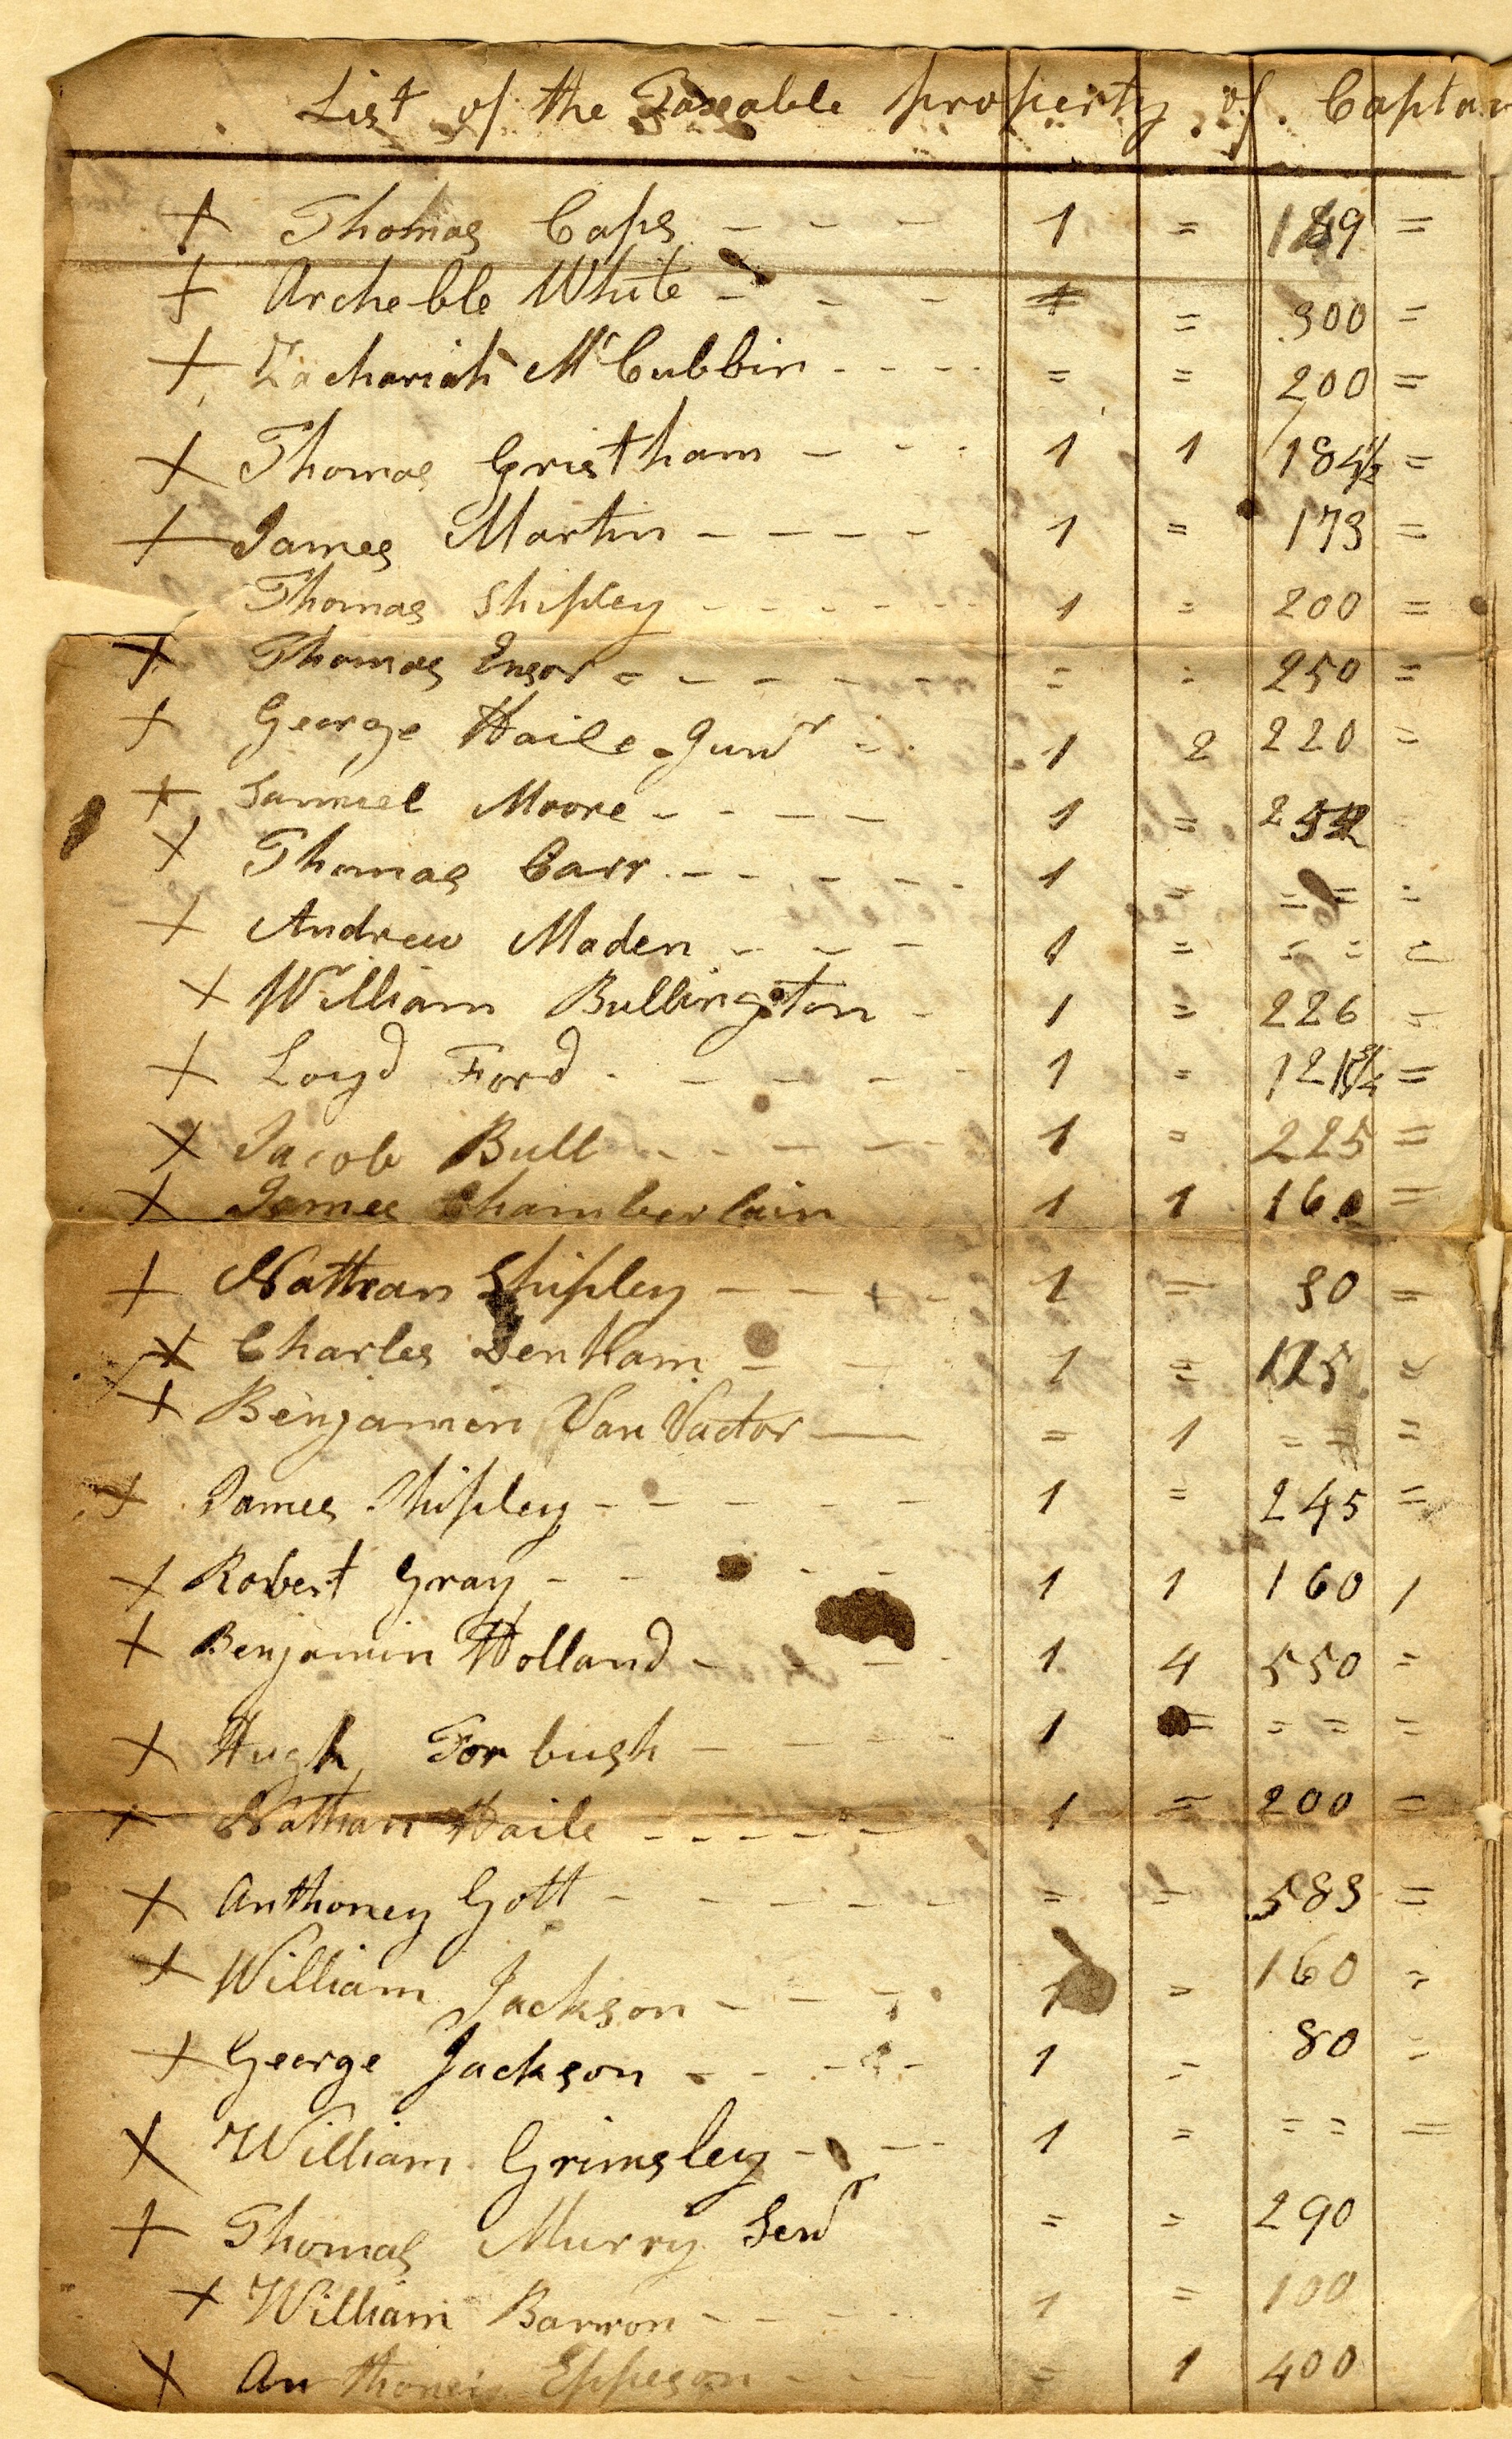 List of the Taxeable property of Captai
+ Thomas Caps - - - 1 = 189 =
+ Archeble White - - - 1 = 300 =
+ Zachariah McCubbin - - - - = = 200 =
+ Thomas Gristham - - - 1 1 184½ =
+ James Martin - - - - 1 = 173 =
Thomas Shipley - - - - - - 1 = 200 =
+ Thomas Ensor = - - - - - = = 250 =
+ George Haile Junr - - 1 2 220 =
+ Samuel Moore - - - - 1 =
+ Thomas Carr - - - - - - 1 = = = =
+ Andrew Maden - - - 1 = = = =
+ William Bullington - 1 = 226 =
+ Loyd Ford - - - - - - 1 = 121¾ =
+ Jacob Bull - - - - - 1 = 225 =
+ James Chamberlain 1 1 160 =
+ Nathan Shipley - - - - 1 = 30 =
+ Charles Denham - - 1 = 125 =
+ Benjamin Van Vactor - = 1 = = =
+ James Shipley - - - - - 1 = 245 =
+ Robert Gray - - - - 1 1 160 1
+ Benjamin Holland - - - - 1 4 550 =
+ Hugh Forbush - - - - - 1 = = = =
+ Nathan Haile - - - - - 1 = 200 =
+ Anthoney Gott - - - - - = = 583 =
+ William Jackson - - - - 1 = 160 =
+ George Jackson - - - - 1 = 80 =
+ William Grimsley - - - 1 = = = =
+ Thomas Murry Senr = = 290
+ William Barron - - - - 1 = 100
+ Anthoney Eppeson - - - = 1 400